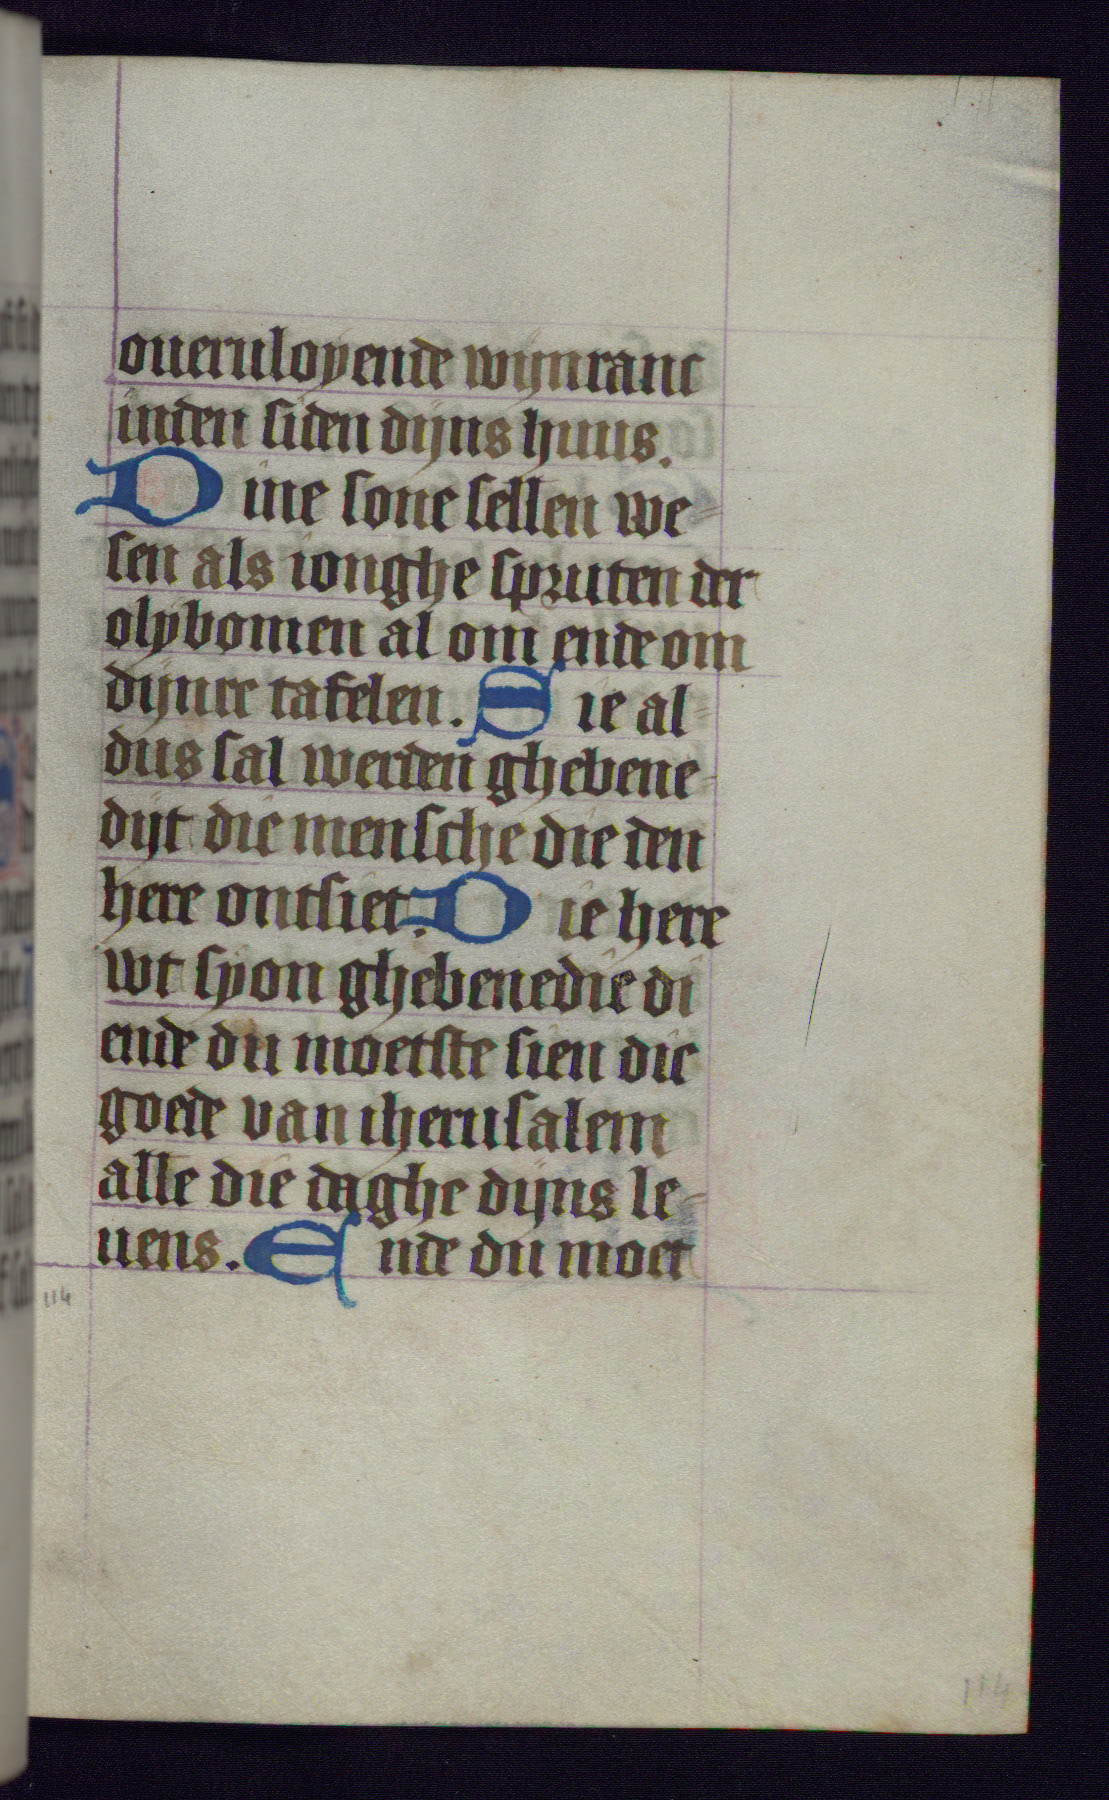 oueruloyende wijnranc
inden siden dijns huus.
Dine sone sellen we
sen als ionghe spruten der
olybomen al om ende om
dijnre tafelen. Sie al
dus sal werden ghebene
dijt die mensche die den
here ontsiet. Die here
wt syon ghebenedie di
ende du moetste sien die
goede van iherusalem
alle die daghe dijns le
uens. Ende du moet
114
114